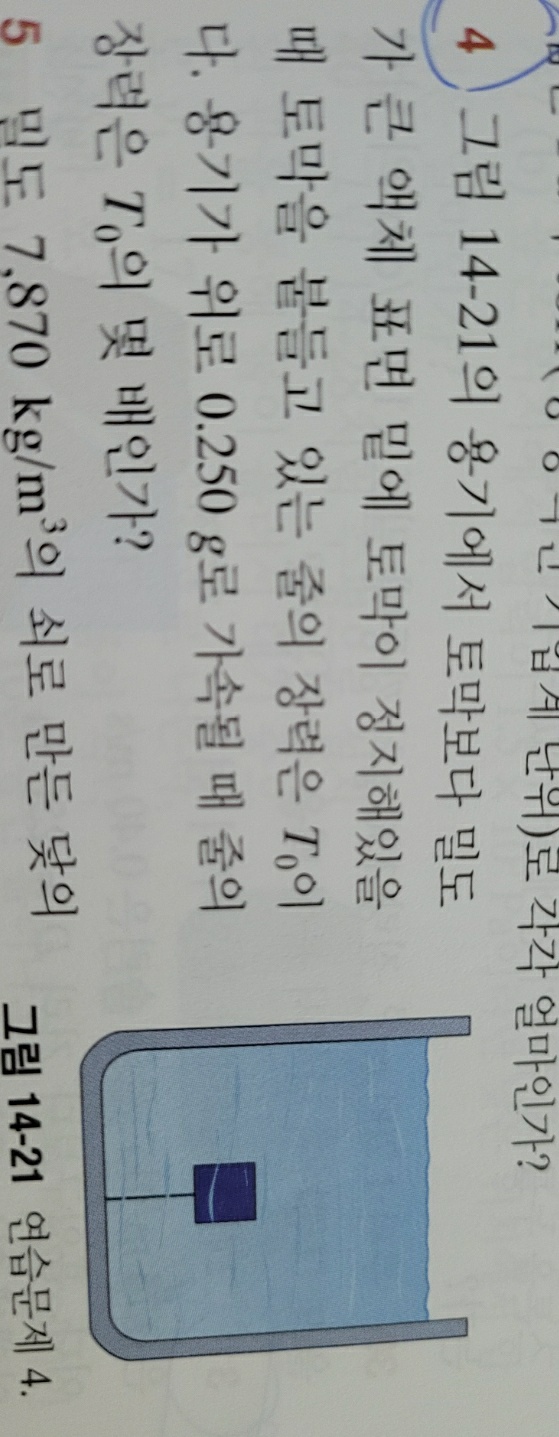 단위)로 각각 얼마인가?
4 그림 14-21의 용기에서 토막보다 밀도
가 큰 액체 표면 밑에 토막이 정지해있을
때 토막을 붙들고 있는 줄의 장력은 T₀이
다. 용기가 위로 0.250 g로 가속될 때 줄의
장력은 T₀의 몇 배인가?
5 밀도 7,870 kg/m³의 쇠로 만든 닻의
그림 14-21 연습문제 4.